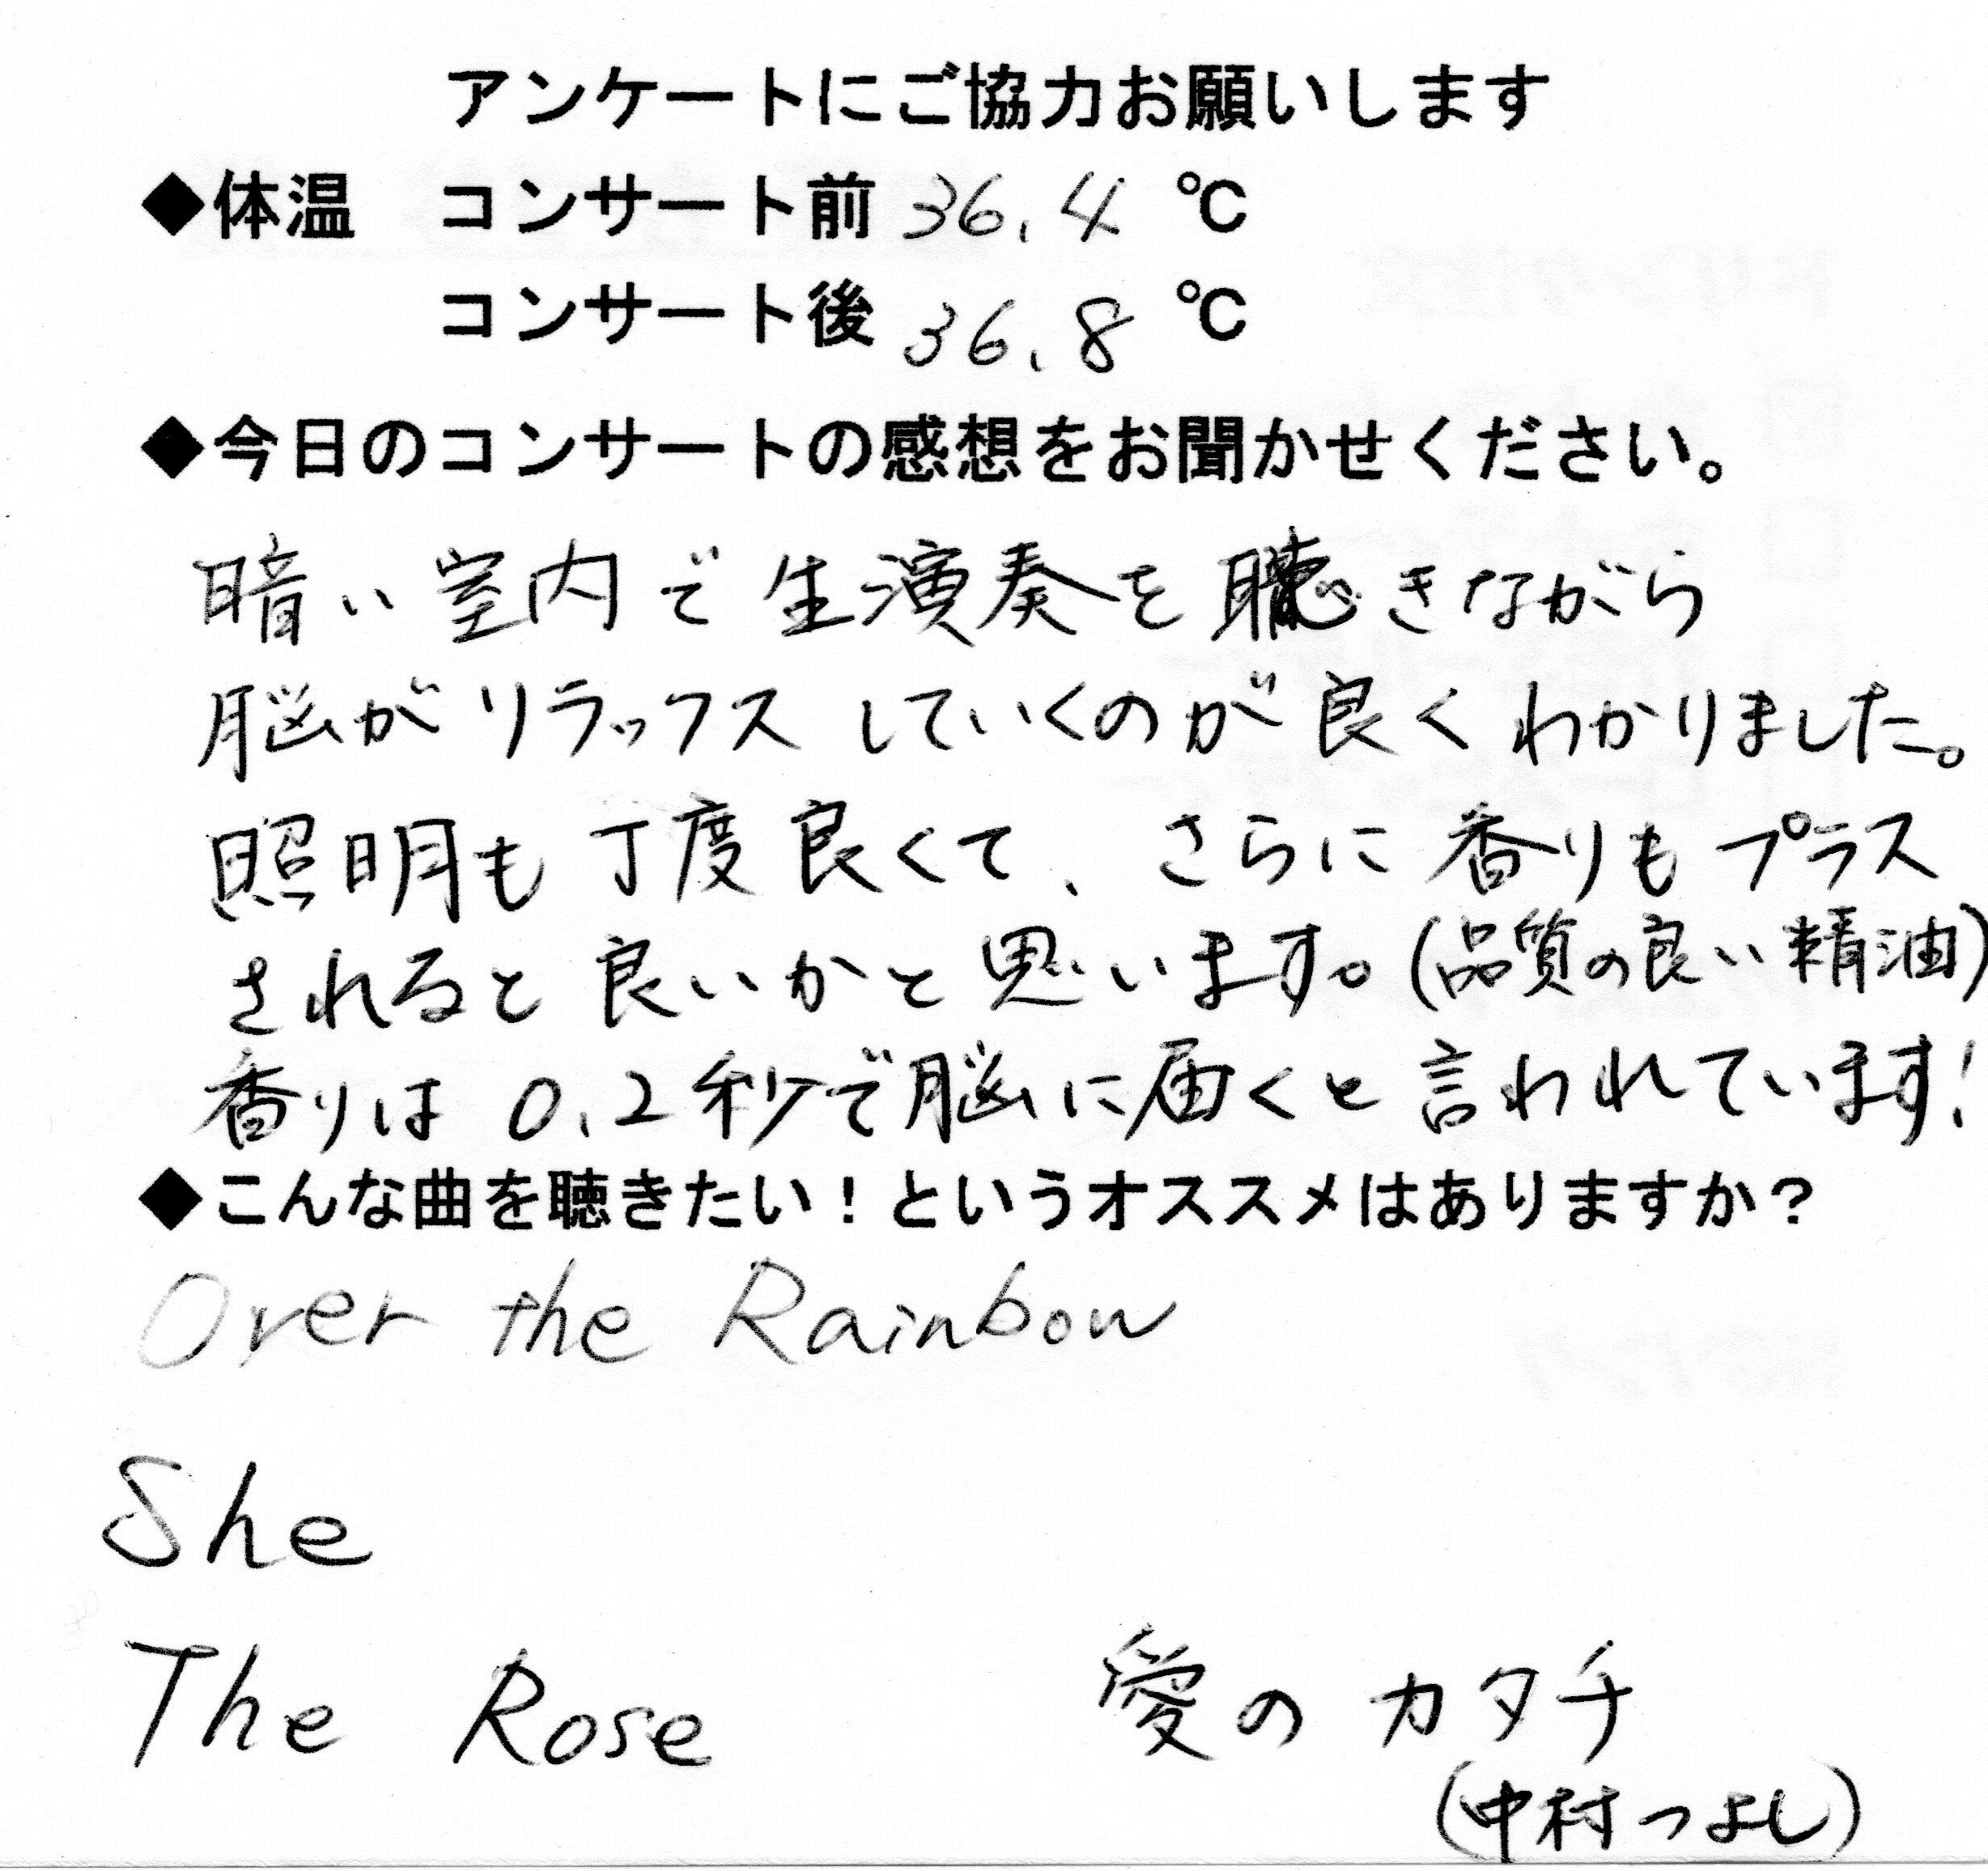 アンケートにご協力お願いします
◆体温 コンサート前 36.4 ℃
コンサート後 36.8 ℃
◆今日のコンサートの感想をお聞かせください。
暗い室内で生演奏を聴きながら
脳がリラックスしていくのが良くわかりました。
照明も丁度良くて、さらに香りもプラス
されると良いかと思います。(品質の良い精油)
香りは0.2秒で脳に届くと言われています!
◆こんな曲を聴きたい！というオススメはありますか？
Over the Rainbow
She
The Rose 愛のカタチ
(中村つよし)